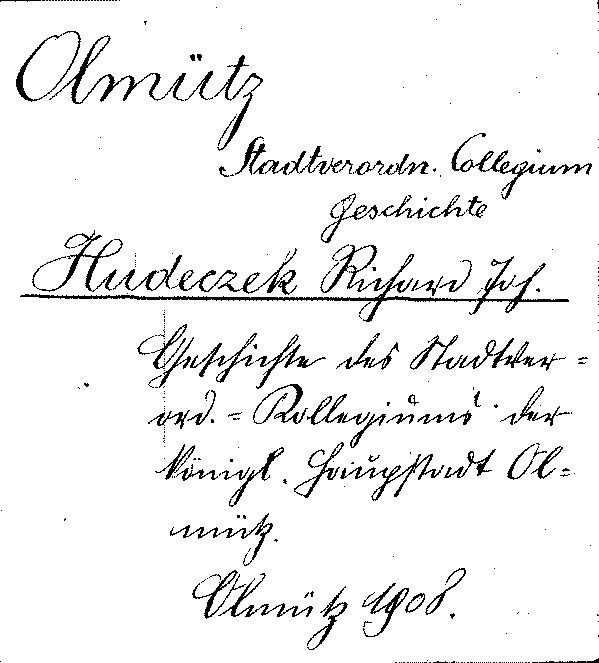 Olmütz
Stadtverordn. Collegium
Geschichte
Hudeczek Richard Joh.
Geschichte des Stadtver-
ord.-Kollegiums der
königl. Hauptstadt Ol-
mütz.
Olmütz 1908.